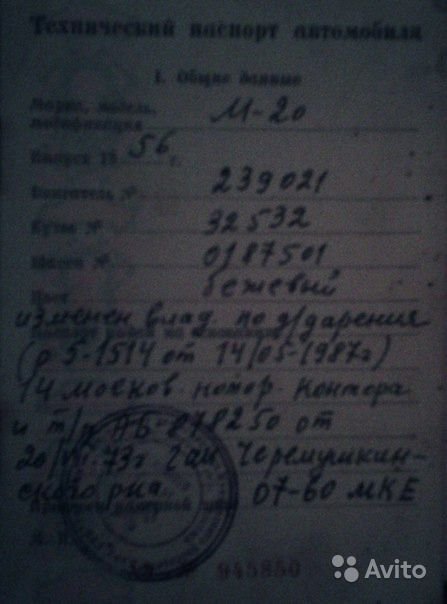 Технический паспорт автомобиля
I. Общие данные
Марка, модель,
модификация М-20
Выпуск 19 56 г.
Двигатель № 239021
Кузов № 32532
Шасси № 0187501
Цвет бежевый
изменен влад. по д/дарения
(р 5-1514 от 14/05-1987г)
14 москов. нотор. контора
и т/п АБ-848250 от
20/VII 73г ГАИ Черемушкин-
ского р-на. 07-60 МКЕ
№ 945850
Avito